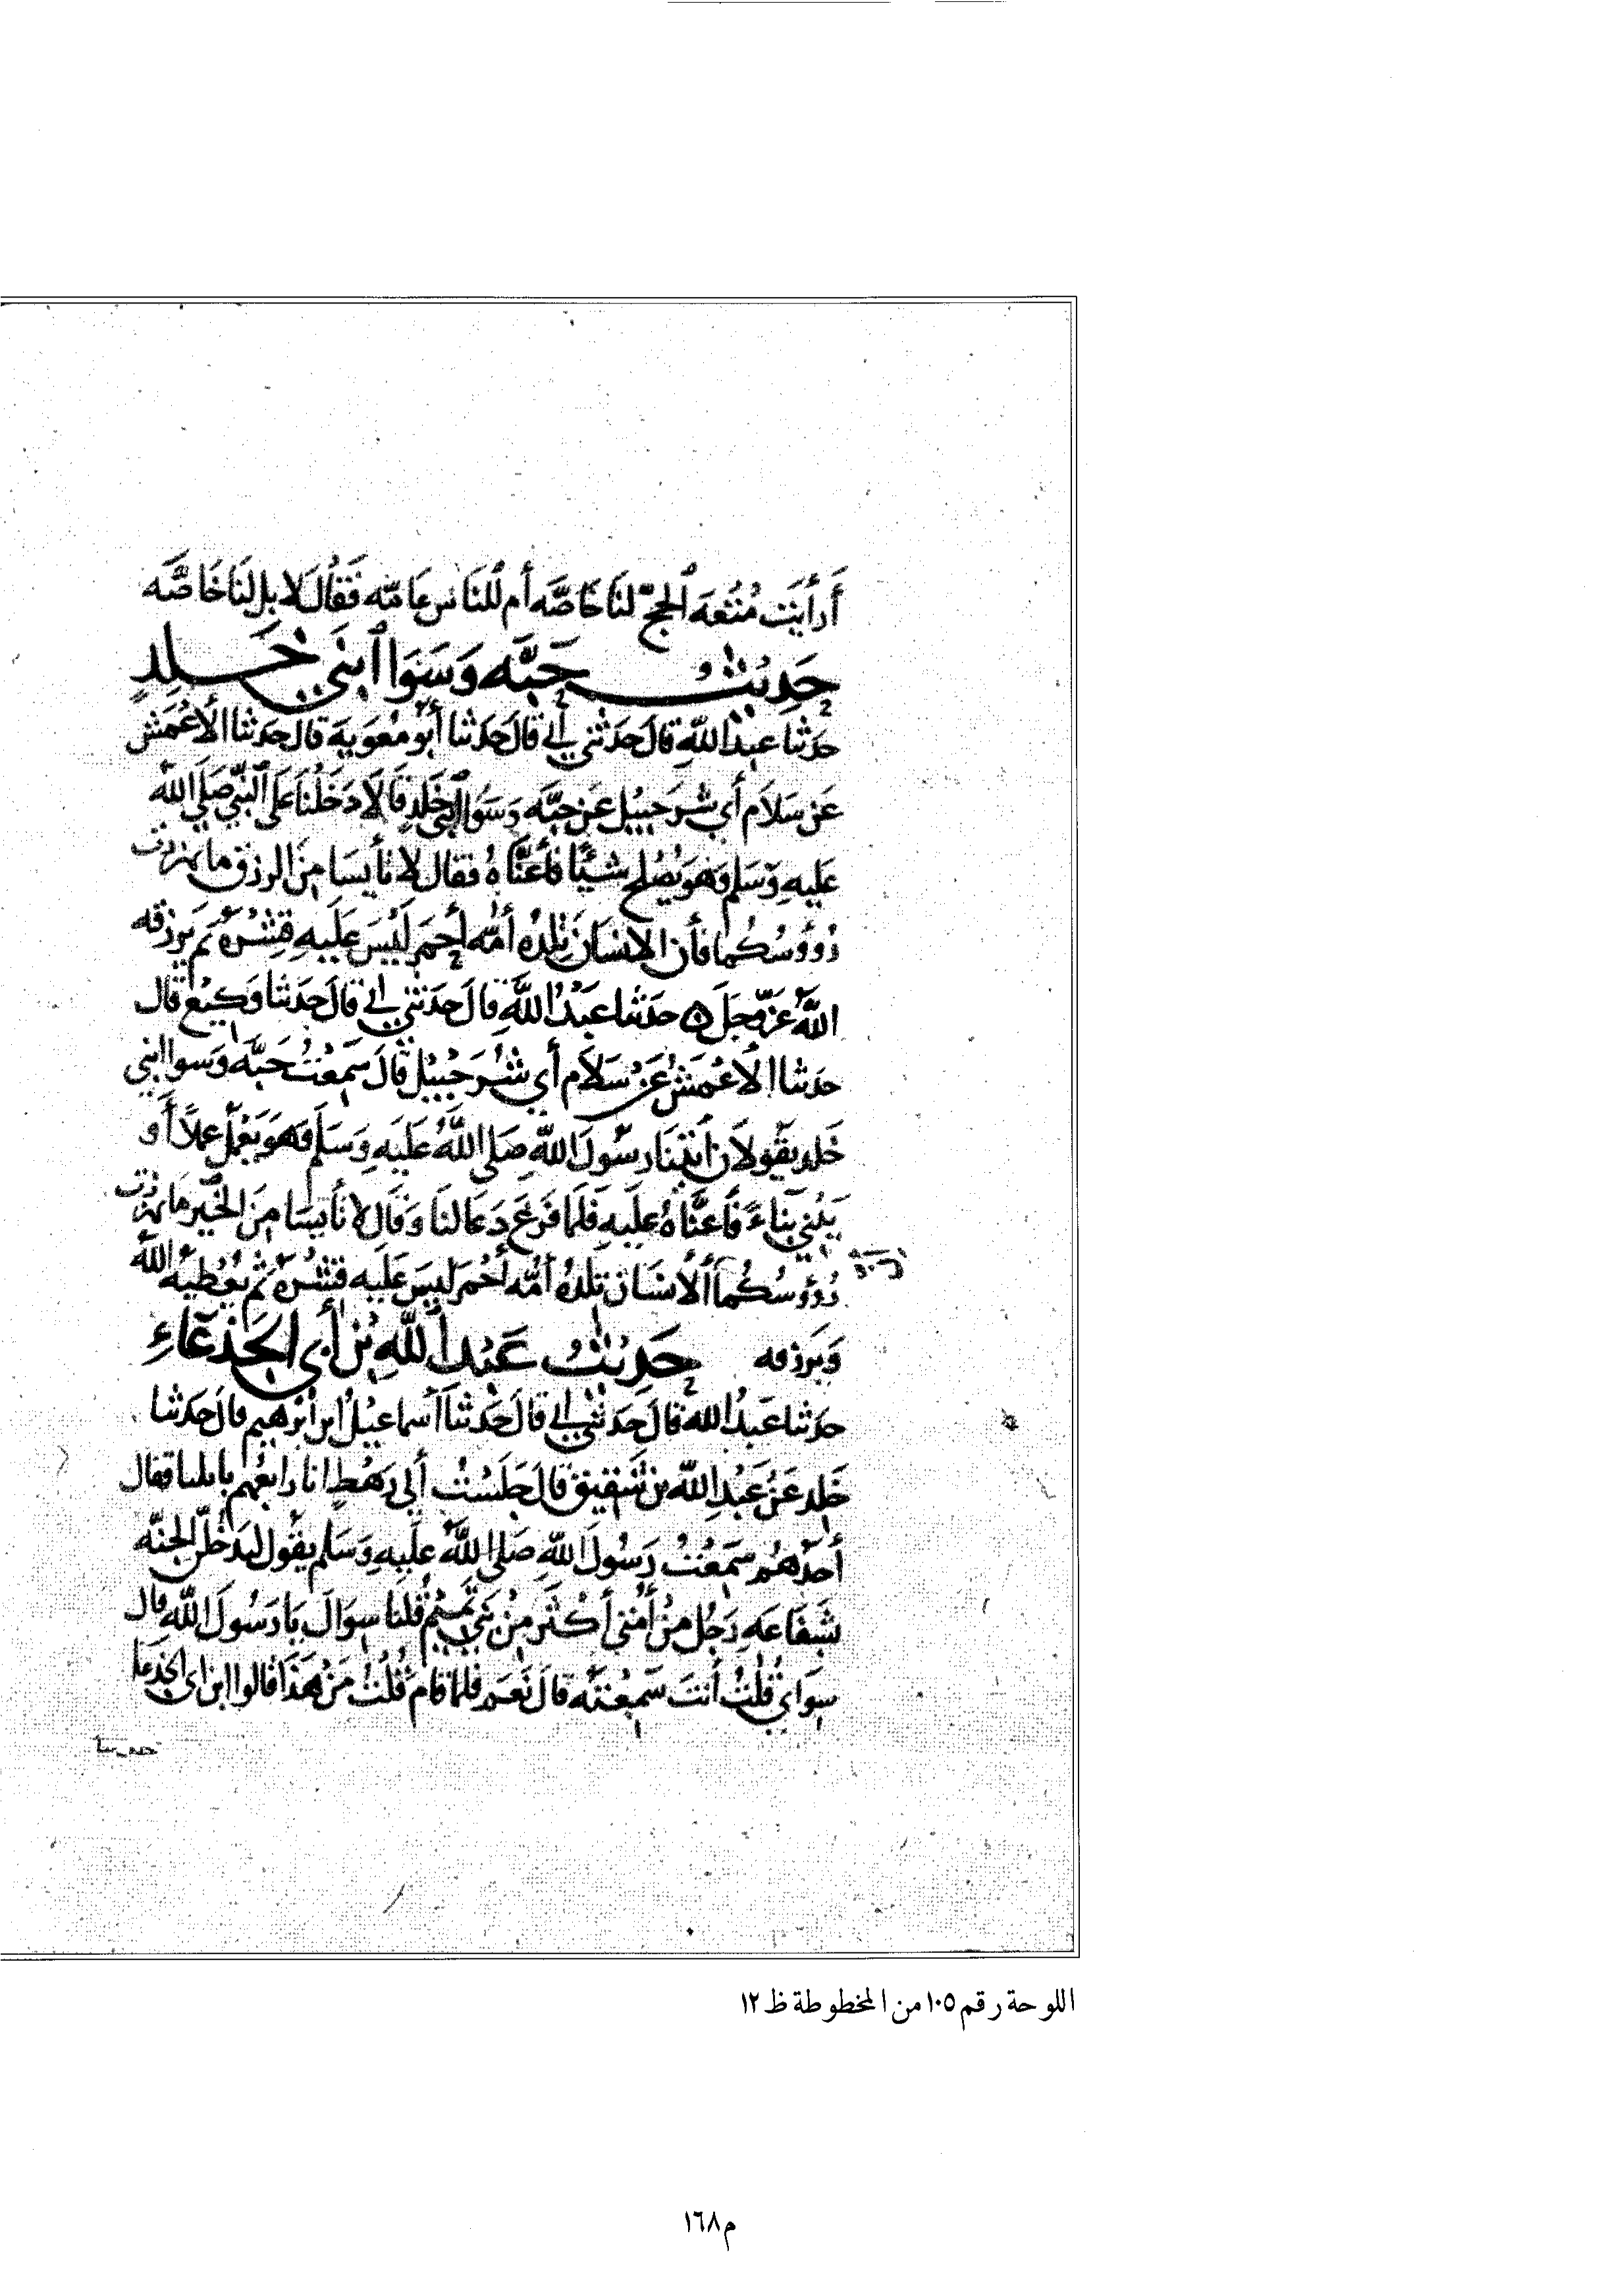 أَرَأَيْتَ مُتْعَهَ الحج لنَا خَاصَّه أم للنَاس عَامّه فَقَالَ لا بل لنَا خَاصَّه
حَدِيثُ حَبَّه وَسَوَا ابنَي خَلدٍ
حدثنا عبدُ اللَّهِ قالَ حَدثني أبي قالَ حَدثنا أبو معَويةَ قال حدثنا الأعْمَش
عَن سَلاَم أبي شرَحبيل عَن حبَّه وَسَوَا ابني خَلدٍ قَالَا دَخَلْنَا عَلى النَّبي صَلى اللَّه
عَليهِ وَسَلم وَهوَ يُصلح شيْئًا فأعنَّاهُ فقال لا تأيسَا مِنَ الرزق ما تهززت
رُؤُوسُكُما فأن الانسَان تلدُهُ أمّه أحمَر لَيْسَ عَلَيهِ قِشرُهٌ ثم يَرزقه
اللَّهُ عَزَّ وَجَلَ ه حدثنا عبدُ اللَّهِ قالَ حدثني أبي قالَ حدثنا وَكيعٌ قال
حدثنا الأعْمَشُ عَن سَلاَم أبي شُرَحْبيل قالَ سَمعتُ حَبَّه وَسوا ابني
خَلد يَقُولَان أتينَا رسُولَ اللَّهِ صَلى اللَّهُ عَلَيهِ وَسَلم وَهوَ يَعْمل عملاً أَو
يَبْني بنَاءً فَأعنَّاهُ عليهِ فَلما فَرغ دَعَا لنا وَقال لا تأيسَا مِنَ الخَير ما تهززت
رُؤوسُكُما أن الأنسَان تلدُهُ أمُّه أحْمَر ليسَ عَلَيه قشرُهٌ ثم يعْطيهُ اللَّه
وَيَرزقه حَديثُ عَبدِ اللَّهِ بن أَبي الجَذْعَاءِ
حدثنا عَبدُ الله قالَ حَدثني أبي قالَ حَدثنا أسماعيلُ ابن أبرَهيم قال حَدثنا
خَلد عَن عَبْدِ اللَّه بن شَقيق قالَ جَلَسْتُ أِلى رَهْطٍ انا رابعُهم بأيليا فقال
أحَدهُم سَمعتُ رَسُولَ اللَّهِ صَلى اللَّهُ عَلَيهِ وَسَلم يقُول لَيَدْخُلَنَّ الجنَّه
شَفَاعَه رَجُل مِنْ أمَّتي أكثَر مِنْ بَني تَميم قلنَا سِوَاكَ يَا رَسُولَ اللَّهِ قال
سِوَايَ قُلْتُ أنتَ سَمعْتَه قالَ نَعَم فلما قام قُلْتُ مَنْ هَذَا قالوا ابن ابي الجذعا
حدثنا
اللوحة رقم ١٠٥ من المخطوطة ظ ١٢
م ١٦٨